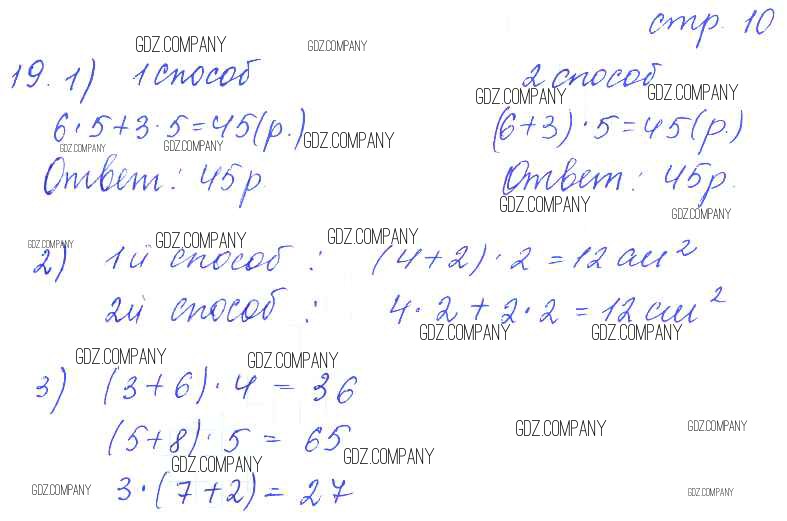 стр. 10
GDZ.COMPANY GDZ.COMPANY
19. 1) 1 способ 2 способ
GDZ.COMPANY GDZ.COMPANY
6·5+3·5=45(р.) (6+3)·5=45(р.)
GDZ.COMPANY GDZ.COMPANY GDZ.COMPANY
Ответ: 45р. Ответ: 45р.
GDZ.COMPANY GDZ.COMPANY
GDZ.COMPANY GDZ.COMPANY GDZ.COMPANY
2) 1й способ: (4+2)·2=12 см²
2й способ: 4·2+2·2=12 см²
GDZ.COMPANY GDZ.COMPANY
GDZ.COMPANY GDZ.COMPANY
3) (3+6)·4=36
(5+8)·5=65
GDZ.COMPANY GDZ.COMPANY
GDZ.COMPANY GDZ.COMPANY
3·(7+2)=27
GDZ.COMPANY GDZ.COMPANY